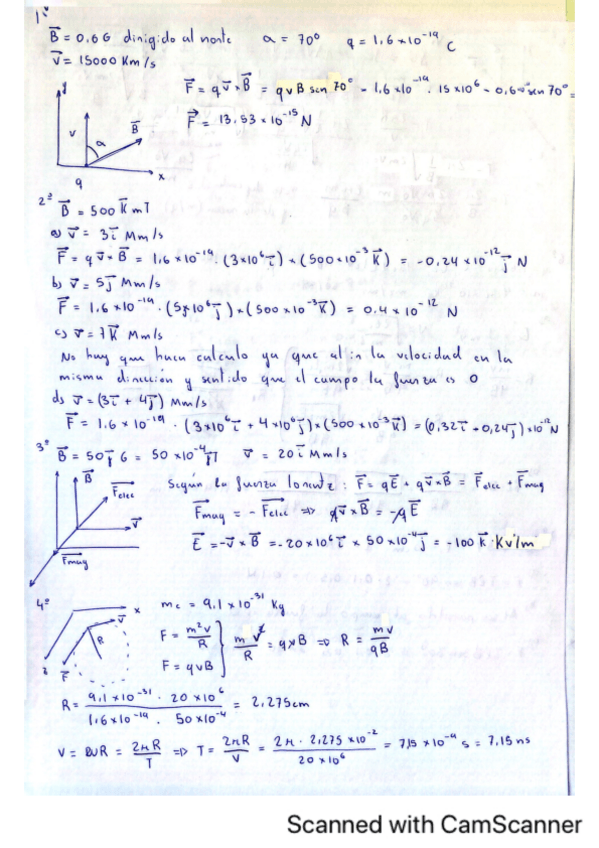 1º
B⃗ = 0.6 G dirigido al norte α = 70º q = 1,6×10⁻¹⁹ C
v⃗ = 15000 Km/s
F⃗ = q v⃗ × B⃗ = q v B sen 70º = 1.6×10⁻¹⁹ · 15×10⁶ · 0,6 sen 70º =
F⃗ = 13,53 × 10⁻¹⁵ N
y
v
α
B⃗
x
q
2º B⃗ = 500 k⃗ mT
a) v⃗ = 3i⃗ Mm/s
F⃗ = q v⃗ × B⃗ = 1,6 × 10⁻¹⁹ · (3×10⁶ i⃗) × (500×10⁻³ k⃗) = -0,24 × 10⁻¹² j⃗ N
b) v⃗ = 5j⃗ Mm/s
F⃗ = 1,6 × 10⁻¹⁹ · (5×10⁶ j⃗) × (500 × 10⁻³ k⃗) = 0.4 × 10⁻¹² N
c) v⃗ = 7k⃗ Mm/s
No hay que hacer calculo ya que al ir la velocidad en la
misma dirección y sentido que el campo la fuerza es 0
d) v⃗ = (3i⃗ + 4j⃗) Mm/s
F⃗ = 1.6 × 10⁻¹⁹ · (3×10⁶ i⃗ + 4×10⁶ j⃗) × (500 × 10⁻³ k⃗) = (0,32 i⃗ - 0,24 j⃗) × 10⁻¹² N
3º B⃗ = 50 j⃗ G = 50 × 10⁻⁴ j⃗ T v⃗ = 20 i⃗ Mm/s
B⃗
F⃗elec
v⃗
F⃗mag
Según la fuerza lorentz: F⃗ = qE⃗ + q v⃗ × B⃗ = F⃗elec + F⃗mag
F⃗mag = - F⃗elec ⇒ q v⃗ × B⃗ = -q E⃗
E⃗ = -v⃗ × B⃗ = -20 × 10⁶ i⃗ × 50 × 10⁻⁴ j⃗ = -100 k⃗ · Kv/m
4º
x
v⃗
R
z
F⃗
me = 9,1 × 10⁻³¹ Kg
F = m²v/R
F = qvB
} m v²/R = qvB ⇒ R = mv/qB
R = 9,1 × 10⁻³¹ · 20 × 10⁶ / 1,6×10⁻¹⁹ · 50 × 10⁻⁴ = 2,275 cm
V = ωR = 2πR/T ⇒ T = 2πR/V = 2π · 2,275 × 10⁻² / 20 × 10⁶ = 7,15 × 10⁻⁹ s = 7,15 ns
Scanned with CamScanner